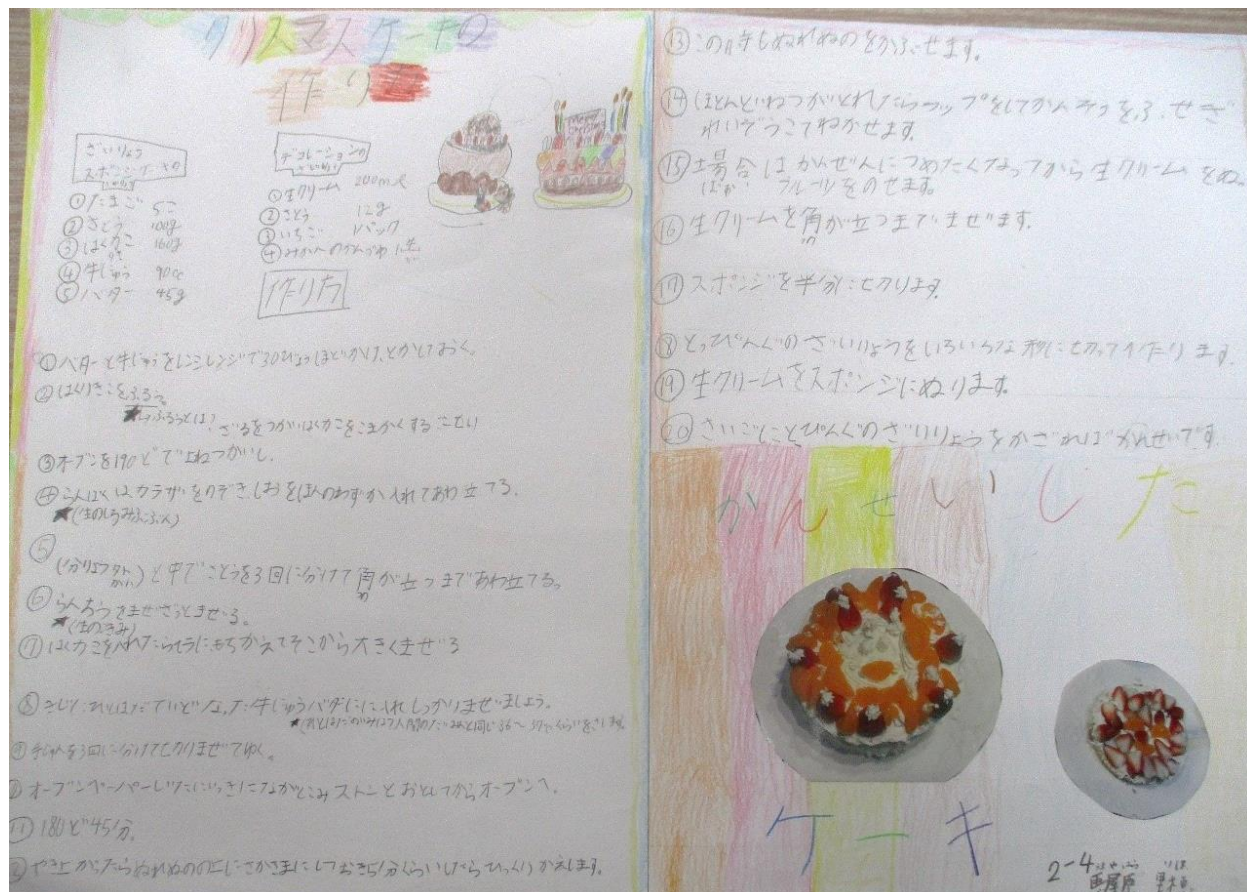 クリスマスケーキの
作り
ざいりょう
スポンジケーキの
①たまご 5こ
②さとう 100g
③はくりきこ 160g
④牛にゅう 90cc
⑤バター 45g
デコレーションの
ざいりょう
①生クリーム 200ml
②さとう 12g
③いちご 1パック
④みかんのかんづめ
作り方
①バターと牛にゅうをレンジで30びょうほどかけ、とかしておく。
②はくりきこをふるう。
★ふるうとは?
ざるをつかいはくりきこをこまかくする
③オーブンを190どでよねつかいし。
④らんぱくはカラザをのぞき、しおをほんのわずか入れてあわ立てる。
★(生のしろみぶぶん)
⑤
と中でさとうを3回に分けて角が立つまであわ立てる。
⑥らんおうをまぜさっとまぜる。
★(生のきみ)
⑦はくりきこを入れたらヘラにもちかえてそこから大きくまぜる
⑧ 牛にゅうバターに入れしっかりまぜましょう。
⑨ を3回に分けて まぜてゆく。
⑩オーブンペーパー ストンとおとしてからオーブンへ。
⑪180ど45分。
⑫やき上がったらぬれぬのの上にさかさまにしておき5分くらいしたらひっくりかえします。
⑬この時もぬれぬのをかぶせます。
⑭ほとんどねつがとれたらラップをして
れいぞうこでねかせます。
⑮場合はかんぜんにつめたくなってから生クリームをぬ
ばあい フルーツをのせます。
⑯生クリームを角が立つまでまぜます。
⑰スポンジを半分に切ります。
⑱とっぴんぐのざいりょうをいろいろな形に切って
⑲生クリームをスポンジにぬります。
⑳さいごに ぴんぐの をかざればかんせいです。
かんせいした
ケーキ
2-4